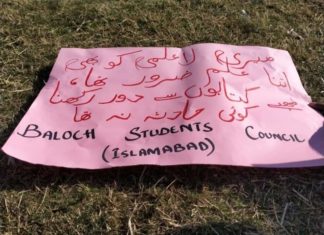 میری لا علمی کو بھی
اتنا علم ضرور تھا،
کتابوں سے دور رکھنا
مجھے کوئی حادثہ نہ تھا
BALOCH STUDENTS COUNCIL
(ISLAMABAD)